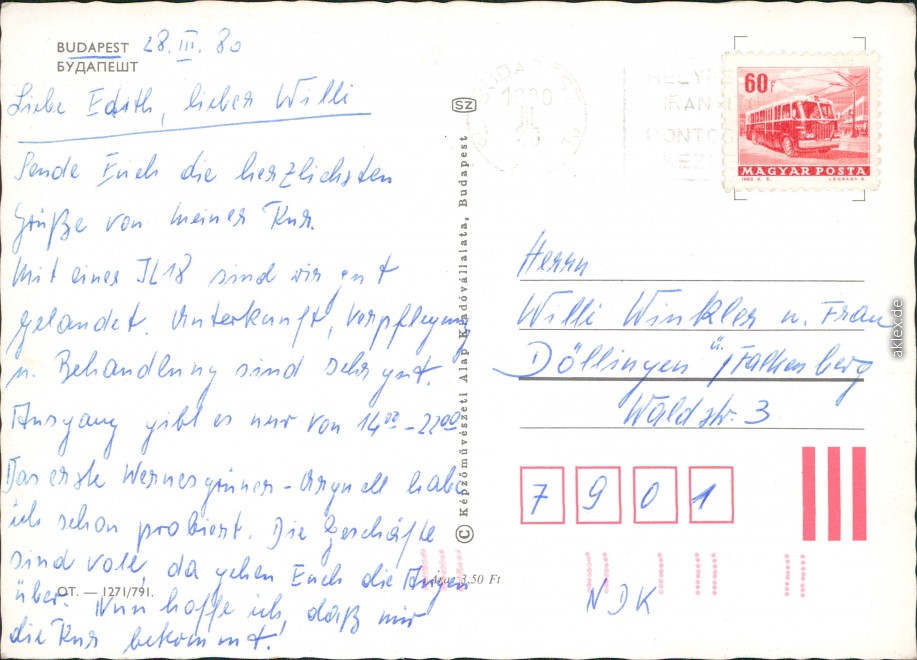 BUDAPEST 28.III.80
БУДАПЕШТ
Liebe Edith, lieber Willi
Sende Euch die herzlichsten
Grüße von meiner Kur.
Mit einer IL18 sind wir gut
gelandet. Unterkunft, Verpflegung
u. Behandlung sind sehr gut.
Ausgang gibt es nur von 14⁰⁰-22⁰⁰
Das erste Wernesgrüner-Urquell habe
ich schon probiert. Die Geschäfte
sind voll, da gehen Euch die Augen
über. Nun hoffe ich, daß mir
die Kur bekommt!
OT. — 1271/791.
SZ
© Képzőművészeti Alap Kiadóvállalata, Budapest
Ára: 3,50 Ft
BUDAPEST
1980
III
28
HELYES
IRÁNYÍ
PONTOS
KÉZB
60f
MAGYAR POSTA
Herrn
Willi Winkler u. Frau
Döllingen ü./Falkenberg
Waldstr. 3
7 9 0 1
NDK
aklex.de